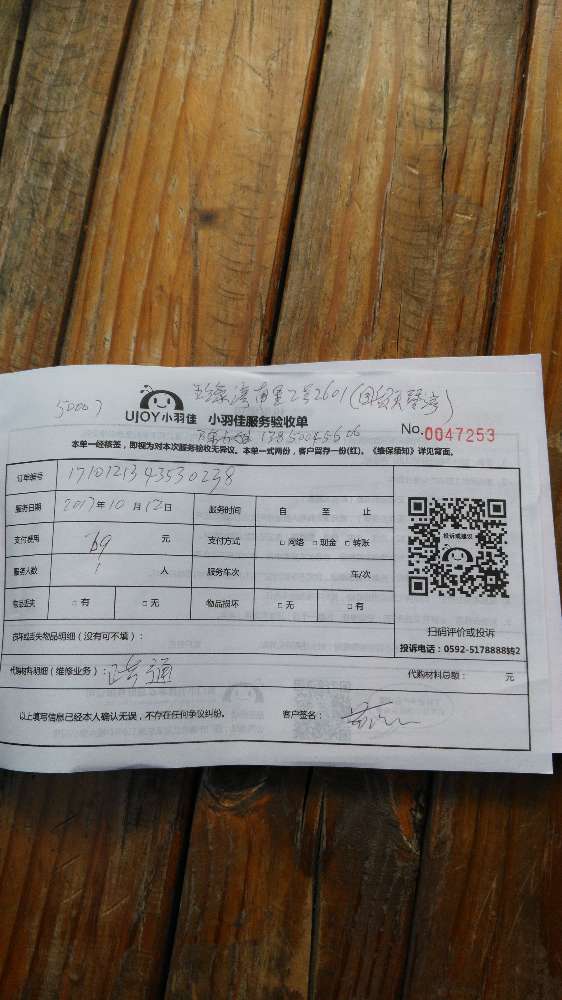 50007
2号2601
UJOY小羽佳 小羽佳服务验收单
No.0047253
本单一经核签,即视为对本次服务验收无异议。本单一式两份,客户留存一份(红)。《维保须知》详见背面。
订单编号
服务日期 2017年10月12日 服务时间 自 至 止
支付费用 69 元 支付方式 □网络 □现金 □转账
服务人数 1 人 服务车次 车/次
物品丢失 □有 □无 物品损坏 □无 □有
投诉或建议
扫码评价或投诉
投诉电话:0592-5178888转2
损坏或丢失物品明细(没有可不填):
代购材料明细(维修业务): 通 代购材料总额: 元
以上填写信息已经本人确认无误,不存在任何争议纠纷。 客户签名: